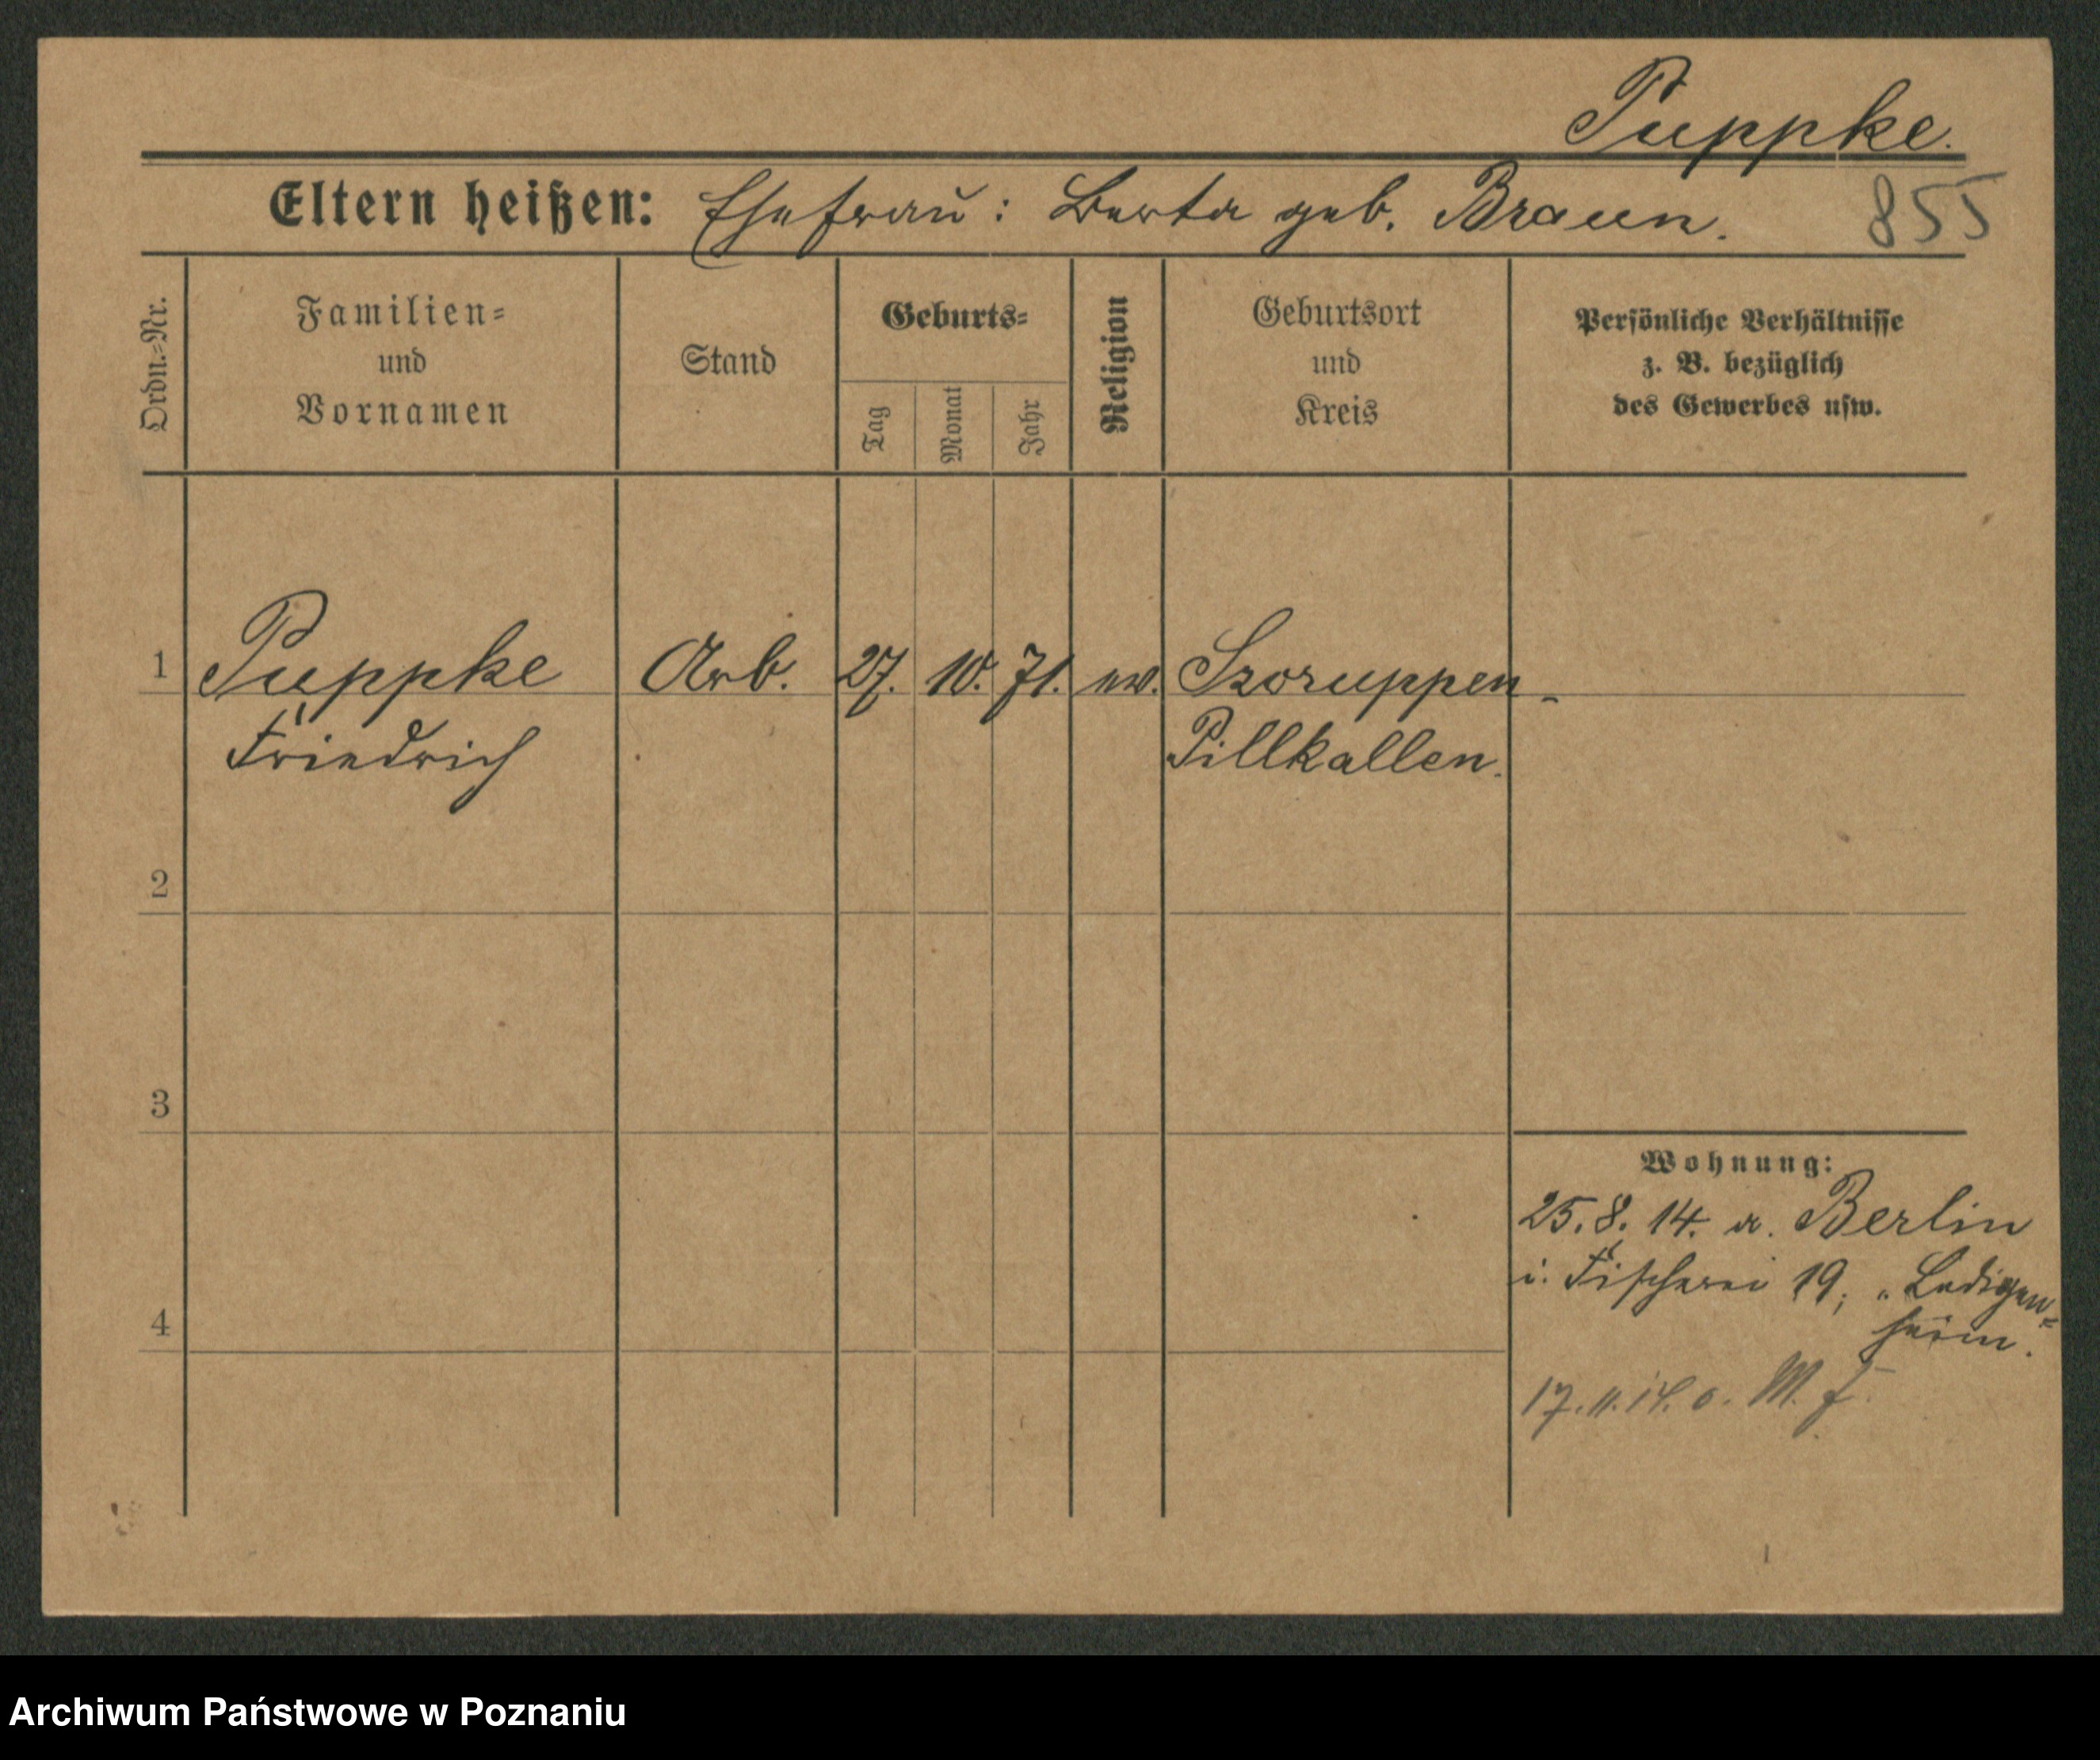 Puppke.
Eltern heißen: Ehefrau: Berta geb. Braun. 855
Ordn.=Nr.
Familien=
und
Vornamen
Stand
Geburts=
Tag
Monat
Jahr
Religion
Geburtsort
und
Kreis
Persönliche Verhältnisse
z. B. bezüglich
des Gewerbes usw.
1 Puppke Arb. 27. 10. 71. ev. Szoruppen-
Friedrich Pillkallen.
2
3
Wohnung:
25. 8. 14. a. Berlin
i. Fischerei 19, "Ledigen=
4
heim.
17. 11. 14. o. M. f.
Archiwum Państwowe w Poznaniu